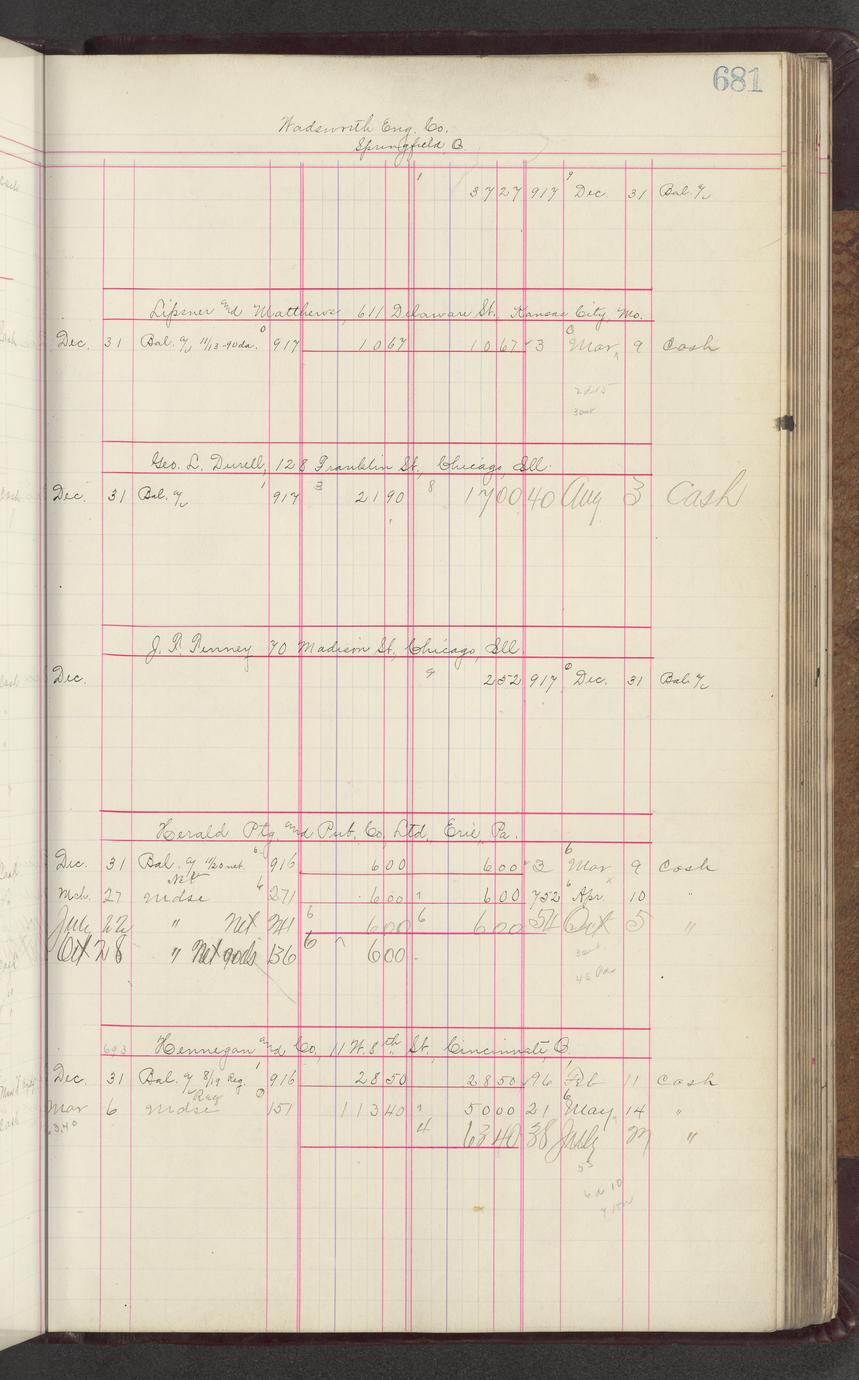 681
Wadsworth Eng. Co.
Springfield, O.
1 37 27 917 9 Dec. 31 Bal. %
Lipsner and Matthews, 611 Delaware St. Kansas City, Mo.
Dec. 31 Bal. % 11/13-90da. 0 917 10 67 10 67 3 0 Mar. 9 Cash
3
Geo. L. Durell, 128 Franklin St., Chicago, Ill.
Dec. 31 Bal. % 1 917 3 21 90 8 17 00 40 Aug 3 Cash
70 Madison St., Chicago, Ill.
Dec. 9 2 52 917 0 Dec. 31 Bal. %
Herald Ptg. and Pub. Co., Ltd., Erie, Pa.
Dec. 31 Bal. % 11/20 net. 6 916 6 00 6 00 3 6 Mar 9 Cash
Net
Mch. 27 Mdse 6 271 6 00 6 00 752 6 Apr. 10 "
July 22 " Net 341 6 6 00 6 6 00 54 Oct 5 "
Oct 28 " Net 136 6 6 00
693 Hennegan and Co., 11 W. 8th St., Cincinnati, O.
Dec. 31 Bal. % 8/19 Reg. 1 916 28 50 28 50 96 1 Feb 11 Cash
Reg
Mar 6 Mdse 0 151 113 40 50 00 21 6 May 14 "
63.40 4 63 40 38 July 27 "